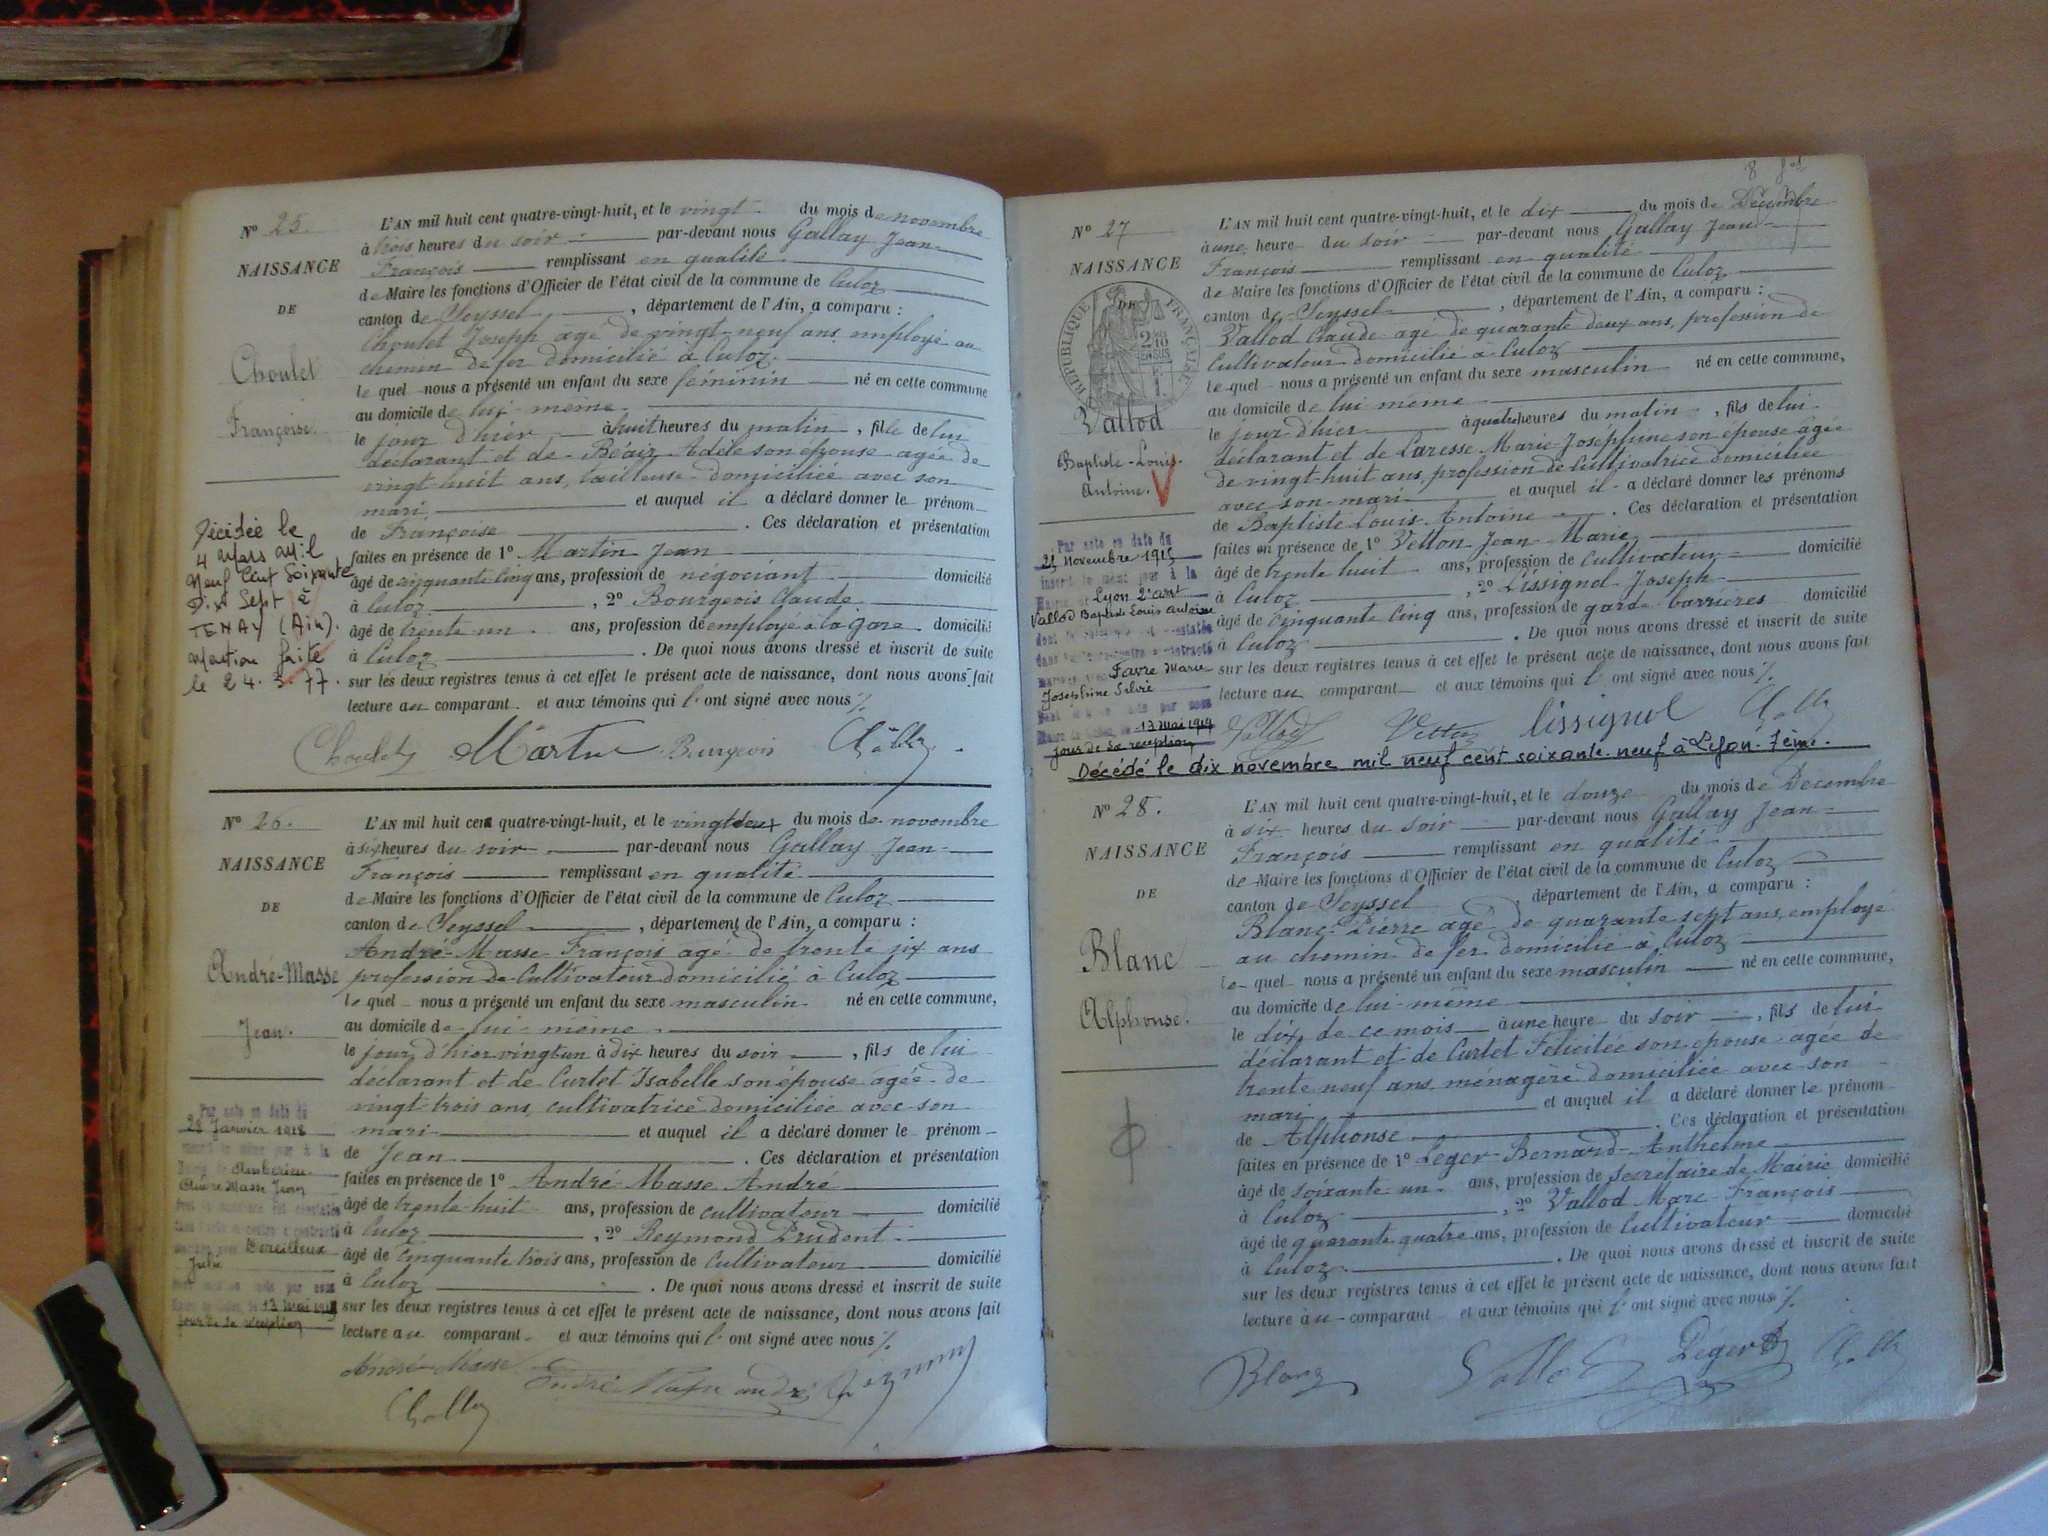 N° 25.
NAISSANCE
DE
Choulet
Françoise.
Décédée le
4 Mars Mil
Neuf Cent Soixante
Dix Sept à
TENAY (Ain).
Mention faite
le 24.3.77.
L'AN mil huit cent quatre-vingt-huit, et le vingt du mois de novembre
à trois heures du soir par-devant nous Gallay Jean-
François remplissant en qualité
de Maire les fonctions d'Officier de l'état civil de la commune de Culoz
canton de Seyssel , département de l'Ain, a comparu :
Choulet Joseph agé de vingt-neuf ans employé au
chemin de fer domicilié à Culoz.
le quel nous a présenté un enfant du sexe féminin né en cette commune
au domicile de lui-même.
le jour d'hier à huit heures du matin , fille de lui
déclarant et de Adèle son épouse agée de
vingt-huit ans, tailleuse domiciliée avec son
mari. et auquel il a déclaré donner le prénom
de Françoise . Ces déclaration et présentation
faites en présence de 1° Martin Jean
âgé de cinquante cinq ans, profession de négociant domicilié
à Culoz , 2° Bourgeois Claude
âgé de trente un ans, profession de employé à la gare domicilié
à Culoz . De quoi nous avons dressé et inscrit de suite
sur les deux registres tenus à cet effet le présent acte de naissance, dont nous avons fait
lecture au comparant et aux témoins qui l'ont signé avec nous
Choulet Martin Bourgeois
N° 26.
NAISSANCE
DE
André-Masse
Jean.
Par acte en date du
28 Janvier 1918
Ambérieu
André Masse Jean
Julie
13 Mai 1919
jour de sa réception
L'AN mil huit cent quatre-vingt-huit, et le vingt deux du mois de novembre
à six heures du soir par-devant nous Gallay Jean-
François remplissant en qualité
de Maire les fonctions d'Officier de l'état civil de la commune de Culoz
canton de Seyssel , département de l'Ain, a comparu :
André-Masse François agé de trente six ans
profession de Cultivateur domicilié à Culoz
le quel nous a présenté un enfant du sexe masculin né en cette commune,
au domicile de lui-même.
le jour d'hier vingt un à dix heures du soir , fils de lui
déclarant et de Curtet Isabelle son épouse agée de
vingt-trois ans, cultivatrice domiciliée avec son
mari et auquel il a déclaré donner le prénom
de Jean . Ces déclaration et présentation
faites en présence de 1° André-Masse André
âgé de trente-huit ans, profession de cultivateur domicilié
à Culoz , 2° Reymond Prudent
âgé de cinquante trois ans, profession de Cultivateur domicilié
à Culoz . De quoi nous avons dressé et inscrit de suite
sur les deux registres tenus à cet effet le présent acte de naissance, dont nous avons fait
lecture au comparant et aux témoins qui l'ont signé avec nous
André-Masse
8
N° 27
NAISSANCE
DE
RÉPUBLIQUE FRANÇAISE
Vallod
Baptiste-Louis-
Antoine.
Par acte en date du
21 Novembre 1915
inscrit le même jour à la
Lyon 2e art
Vallod Baptiste Louis Antoine
Favre Marie
Joséphine
13 Mai 1919
jour de sa réception
L'AN mil huit cent quatre-vingt-huit, et le dix du mois de Décembre
à une heure du soir par-devant nous Gallay Jean-
François remplissant en qualité
de Maire les fonctions d'Officier de l'état civil de la commune de Culoz
canton de Seyssel , département de l'Ain, a comparu :
Vallod Claude agé de quarante deux ans, profession de
Cultivateur domicilié à Culoz
le quel nous a présenté un enfant du sexe masculin né en cette commune,
au domicile de lui même
le jour d'hier à quatre heures du matin , fils de lui
déclarant et de Laresse Marie-Joséphine son épouse agée
de vingt-huit ans, profession de Cultivatrice domiciliée
avec son mari et auquel il a déclaré donner les prénoms
de Baptiste Louis Antoine . Ces déclaration et présentation
faites en présence de 1° Vetton Jean Marie
âgé de trente huit ans, profession de Cultivateur domicilié
à Culoz , 2° Lissignol Joseph
âgé de cinquante cinq ans, profession de garde-barrières domicilié
à Culoz . De quoi nous avons dressé et inscrit de suite
sur les deux registres tenus à cet effet le présent acte de naissance, dont nous avons fait
lecture au comparant et aux témoins qui l'ont signé avec nous
Vallod Vetton lissignol
Décédé le dix novembre mil neuf cent soixante-neuf à Lyon-7ème.
N° 28.
NAISSANCE
DE
Blanc
Alphonse.
L'AN mil huit cent quatre-vingt-huit, et le douze du mois de Décembre
à six heures du soir par-devant nous Gallay Jean-
François remplissant en qualité
de Maire les fonctions d'Officier de l'état civil de la commune de Culoz
canton de Seyssel , département de l'Ain, a comparu :
Blanc Pierre agé de quarante sept ans, employé
au chemin de fer domicilié à Culoz
le quel nous a présenté un enfant du sexe masculin né en cette commune,
au domicile de lui-même
le dix de ce mois à une heure du soir , fils de lui
déclarant et de Curtet Félicitée son épouse agée de
trente neuf ans ménagère domiciliée avec son
mari et auquel il a déclaré donner le prénom
de Alphonse . Ces déclaration et présentation
faites en présence de 1° Leger-Bernard-Anthelme
âgé de soixante un ans, profession de secrétaire de Mairie domicilié
à Culoz , 2° Vallod Marc François
âgé de quarante quatre ans, profession de Cultivateur domicilié
à Culoz . De quoi nous avons dressé et inscrit de suite
sur les deux registres tenus à cet effet le présent acte de naissance, dont nous avons fait
lecture au comparant et aux témoins qui l'ont signé avec nous
Blanc Vallod Leger